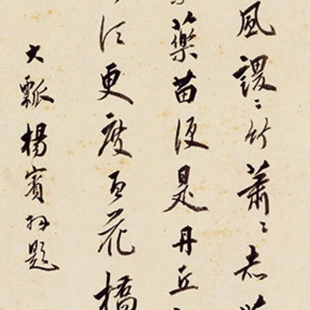 風謖〻竹蕭〻
藥苗便是丹丘
須更度百花橋
大瓢楊賓題